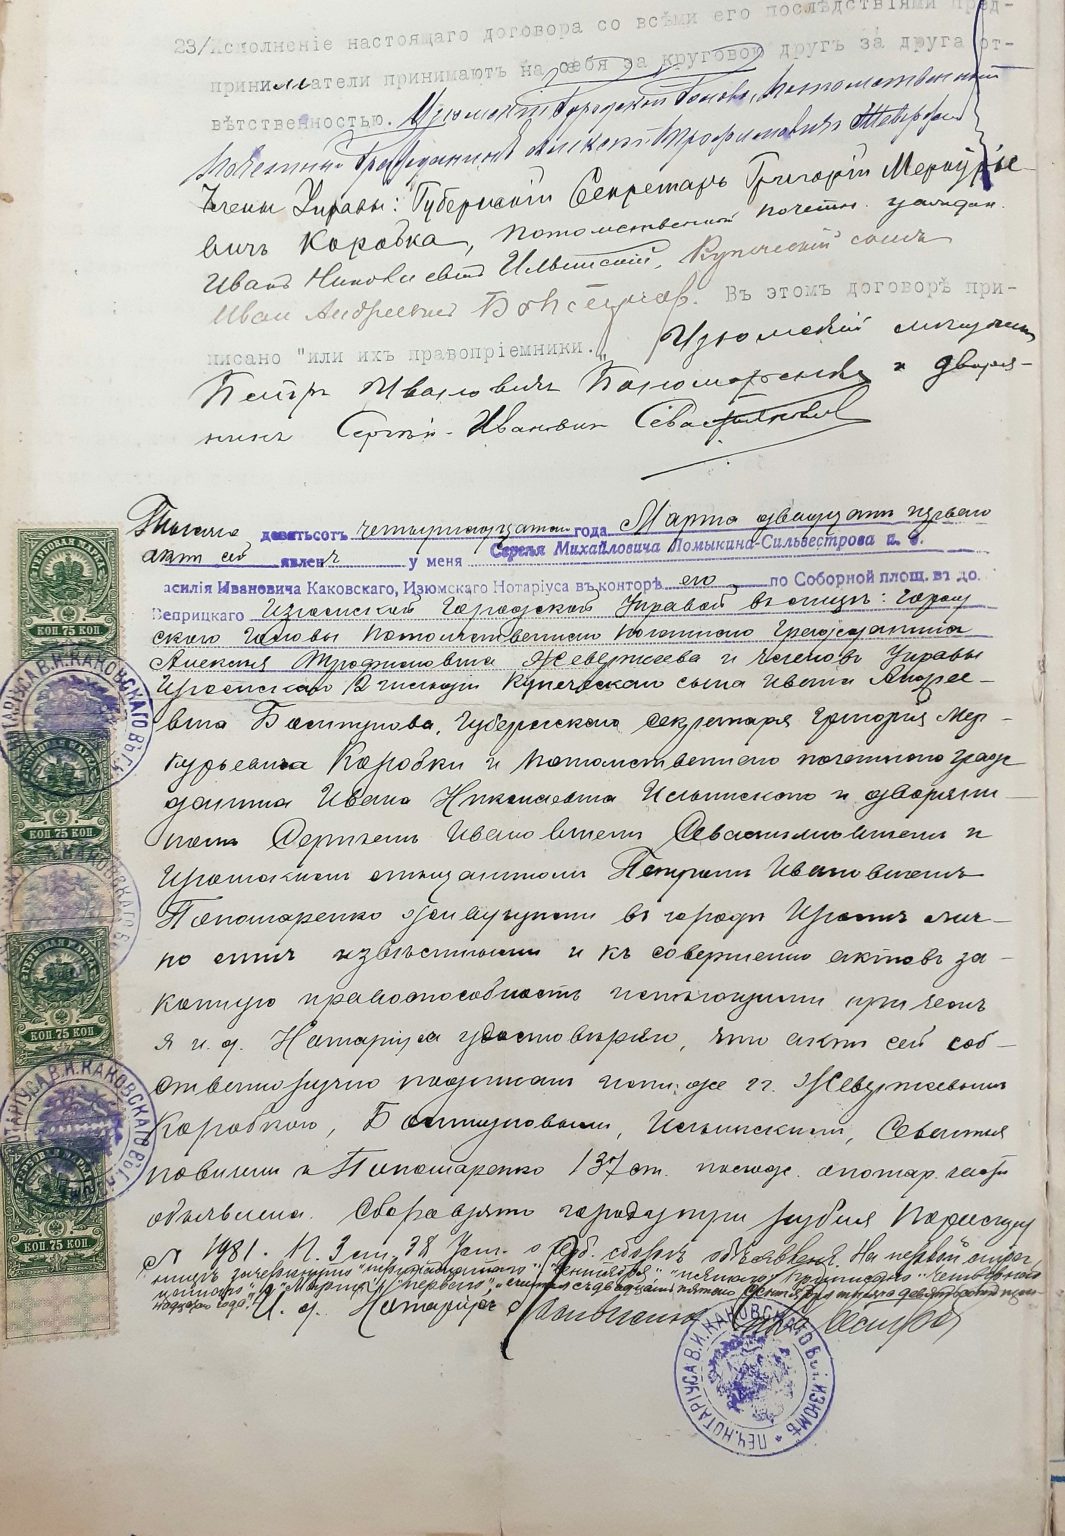 23/Исполненіе настоящаго договора со всѣми его послѣдствіями пред-
приниматели принимаютъ на себя за круговой другъ за друга от-
вѣтственностью. Изюмскій Городской Голова, Потомственный
Почетный Гражданинъ Алексѣй Трофимовичъ Жевержеевъ
Члены Управы: Губернскій Секретарь Григорій Меркурье-
вичъ Коробка, потомственный почетн. граждан.
Иванъ Николаевичъ Ильинскій, Купеческій сынъ
Иванъ Андреевичъ Бостуновъ. Въ этомъ договорѣ при-
писано "или ихъ правопріемники." Изюмскій мѣщанинъ
Петръ Ивановичъ Пономаренко и дворя-
нинъ Сергѣй Ивановичъ Севастьяновичъ
Тысяча девятьсотъ четырнадцатаго года Марта двадцать перваго
актъ сей явленъ у меня Сергѣя Михайловича Ломыкина-Сильвестрова и. о.
асилія Ивановича Каковскаго, Изюмскаго Нотаріуса въ конторѣ его по Соборной площ. въ до.
Веприцкаго Изюмской Городской Управой въ лицѣ: Город
ского Головы потомственнаго почетнаго Гражданина
Алексѣя Трофимовича Жевержеева и членовъ Управы
Изюмскаго 2 гильдіи Купеческаго сына Ивана Андрее-
вича Бостунова, Губернскаго Секретаря Григорія Мер-
курьевича Коробки и потомственнаго почетнаго граж
данина Ивана Николаевича Ильинскаго и дворяни-
номъ Сергѣемъ Ивановичемъ Севастьяновичемъ и
Изюмскимъ мѣщаниномъ Петромъ Ивановичемъ
Пономаренко живущими въ городѣ Изюмѣ лич-
но мнѣ извѣстными и къ совершенію актовъ за-
конную правоспособность имѣющими при чемъ
я и. о. Нотаріуса удостовѣряю, что актъ сей соб-
ственноручно подписанъ ими же г.г. Жевержеевымъ
Коробкою, Бостуновымъ, Ильинскимъ, Севастья
новичемъ и Пономаренко 137 ст. полож. о нотар. части
объявлена. Сбора взято городу три рубля По реестру
№ 1981. И. О. Нотаріуса
КОП. 75 КОП.
КОП. 75 КОП.
ГЕРБОВАЯ МАРКА
КОП. 75 КОП.
КОП. 75 КОП.
ПЕЧ. НОТАРІУСА В. И. КАКОВСКАГО ВЪ Г. ИЗЮМѢ